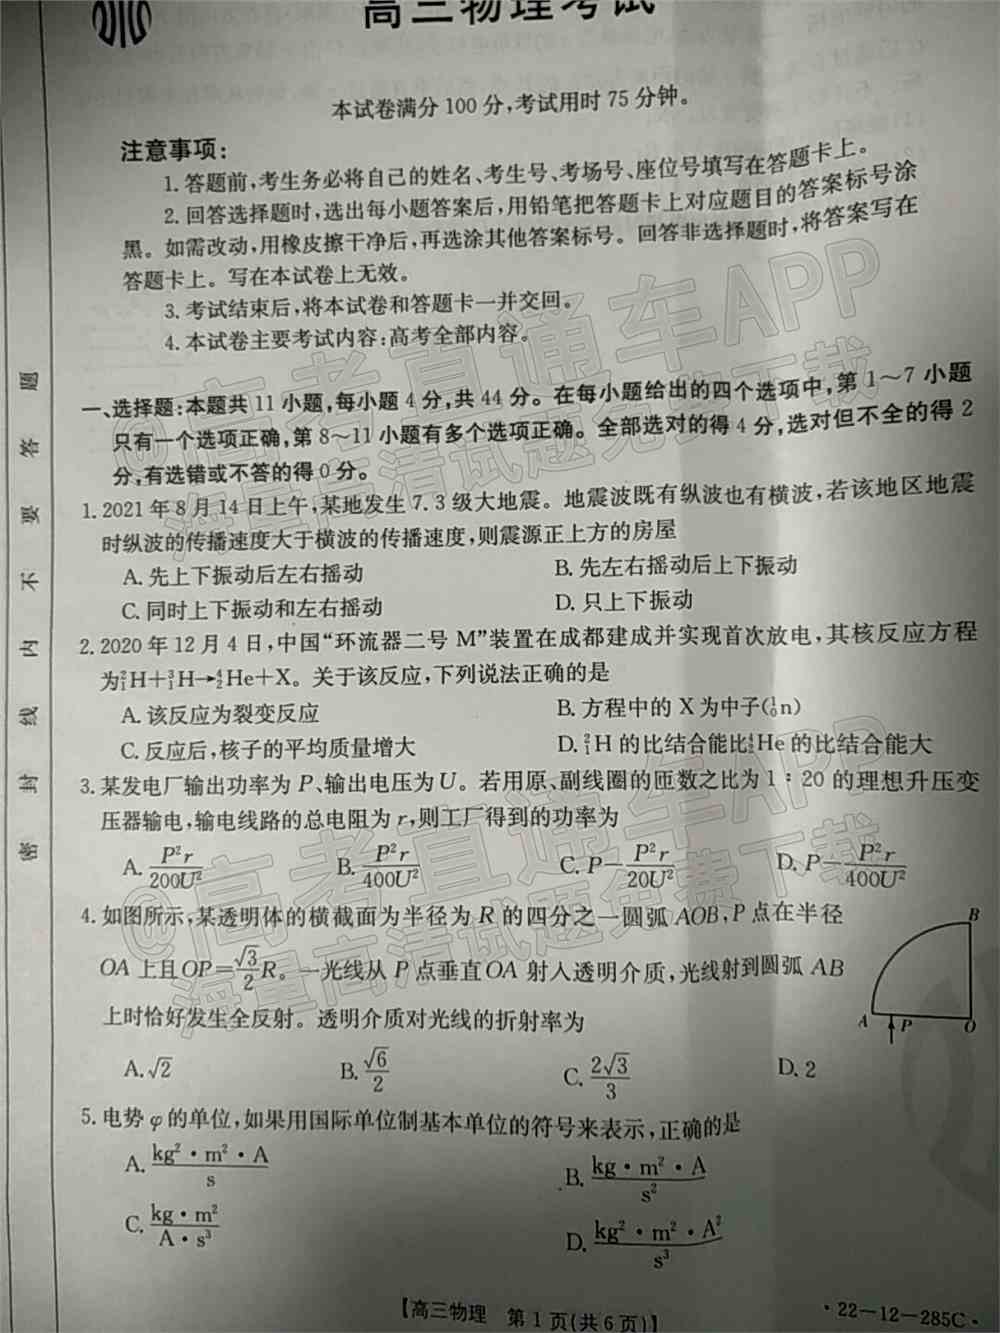 高三物理考试
本试卷满分100分,考试用时75分钟。
注意事项:
1.答题前,考生务必将自己的姓名、考生号、考场号、座位号填写在答题卡上。
2.回答选择题时,选出每小题答案后,用铅笔把答题卡上对应题目的答案标号涂
黑。如需改动,用橡皮擦干净后,再选涂其他答案标号。回答非选择题时,将答案写在
答题卡上。写在本试卷上无效。
3.考试结束后,将本试卷和答题卡一并交回。
4.本试卷主要考试内容:高考全部内容。
一、选择题:本题共11小题,每小题4分,共44分。在每小题给出的四个选项中,第1~7小题
只有一个选项正确,第8~11小题有多个选项正确。全部选对的得4分,选对但不全的得2
分,有选错或不答的得0分。
1.2021年8月14日上午,某地发生7.3级大地震。地震波既有纵波也有横波,若该地区地震
时纵波的传播速度大于横波的传播速度,则震源正上方的房屋
A.先上下振动后左右摇动 B.先左右摇动后上下振动
C.同时上下振动和左右摇动 D.只上下振动
2.2020年12月4日,中国“环流器二号M”装置在成都建成并实现首次放电,其核反应方程
为²₁H+³₁H→⁴₂He+X。关于该反应,下列说法正确的是
A.该反应为裂变反应 B.方程中的X为中子(¹₀n)
C.反应后,核子的平均质量增大 D.²₁H的比结合能比⁴₂He的比结合能大
3.某发电厂输出功率为P、输出电压为U。若用原、副线圈的匝数之比为1:20的理想升压变
压器输电,输电线路的总电阻为r,则工厂得到的功率为
A. P²r/200U² B. P²r/400U² C. P-P²r/20U² D. P-P²r/400U²
4.如图所示,某透明体的横截面为半径为R的四分之一圆弧AOB,P点在半径
OA上且OP=√3/2R。一光线从P点垂直OA射入透明介质,光线射到圆弧AB
上时恰好发生全反射。透明介质对光线的折射率为
B
A P O
A.√2 B.√6/2 C.2√3/3 D.2
5.电势φ的单位,如果用国际单位制基本单位的符号来表示,正确的是
A. kg²·m²·A/s B. kg·m²·A/s²
C. kg·m²/A·s³ D. kg²·m²·A²/s³
【高三物理 第1页(共6页)】 ·22-12-285C·
密封线内不要答题
@高考直通车APP
海量高清试题免费下载
@高考直通车APP
海量高清试题免费下载